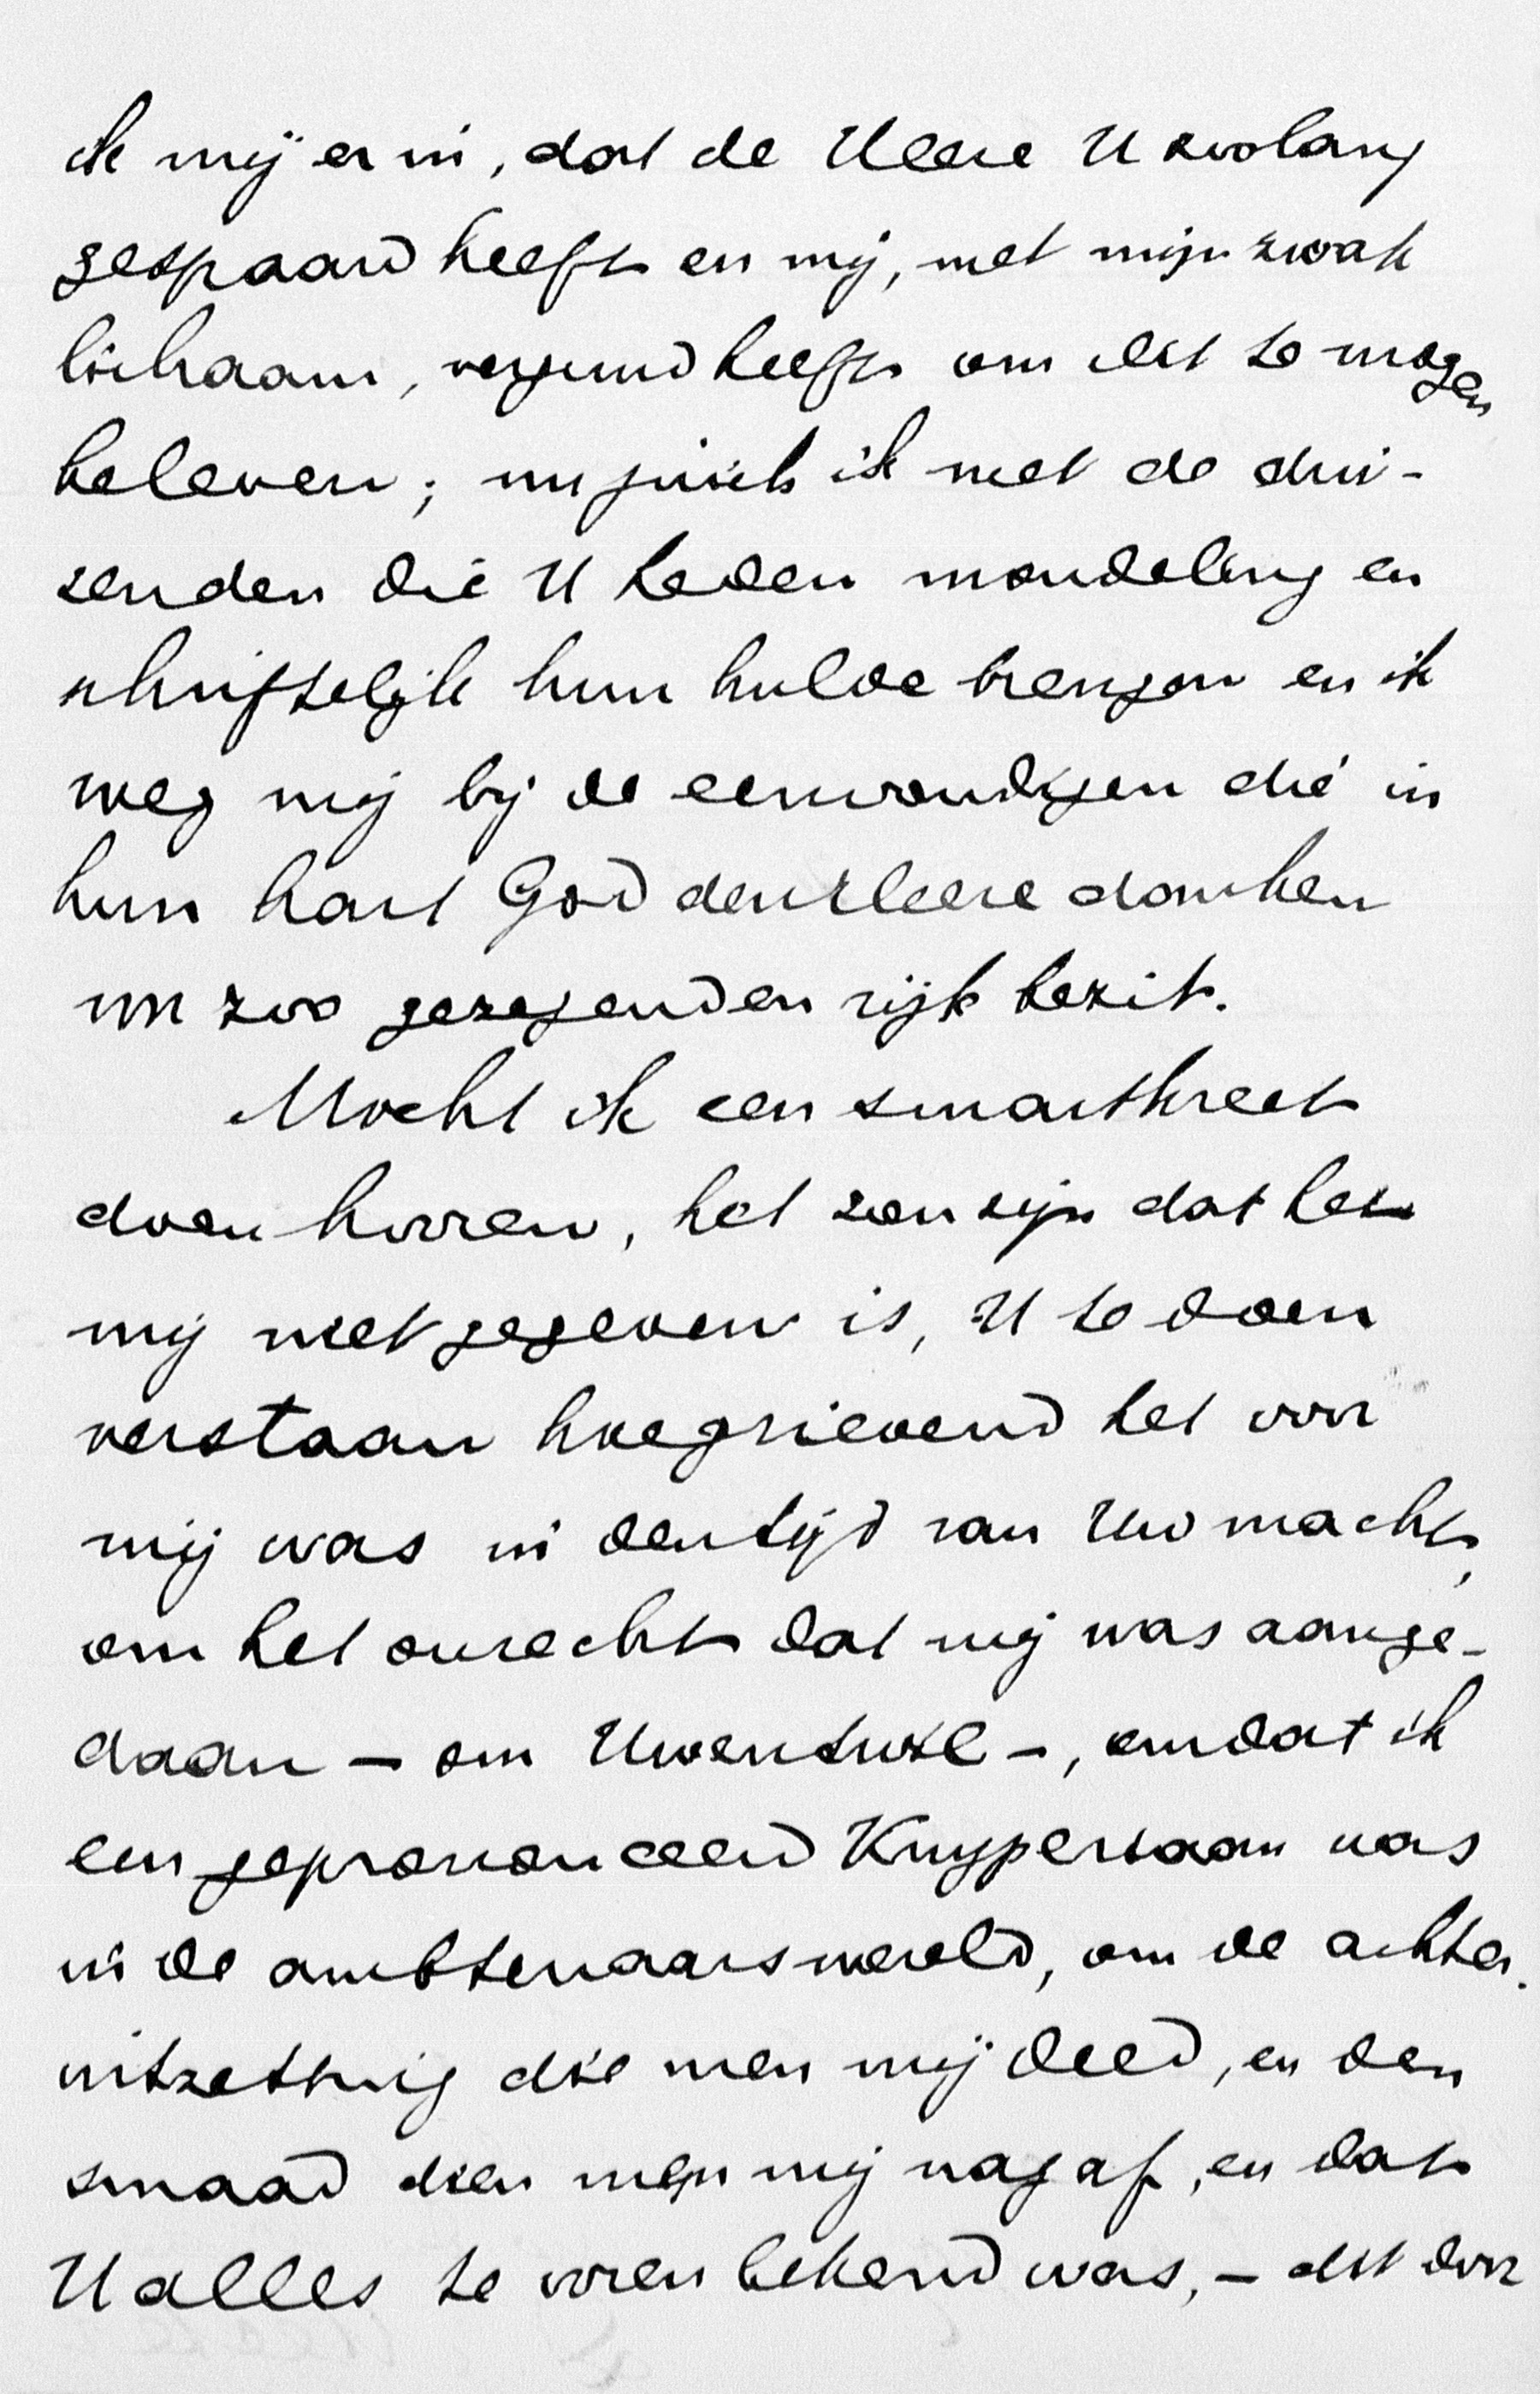 ik mij er in, dat de Heere U zoolang
gespaard heeft en mij, met mijn zwak
lichaam, vergund heeft om dit te mogen
beleven; nu juich ik met de dui-
zenden die U heden mondeling en
schriftelijk hun hulde brengen en ik
voeg mij bij de eenvoudigen die in
hun hart God den Heere danken
om zoo gezegenden rijk bezit.
Mocht ik een smartkreet
doen hooren, het zou zijn dat het
mij niet gegeven is, U te doen
verstaan hoe grievend het voor
mij was in den tijd van Uw macht,
om het onrecht dat mij was aange-
daan — om Uwentwil —, omdat ik
een geprononceerd Kuyperiaan was
in de ambtenaarswereld, om de achter-
uitzetting die men mij deed, en den
smaad dien men mij nagaf, en dat
U alles te voren bekend was, — dit door